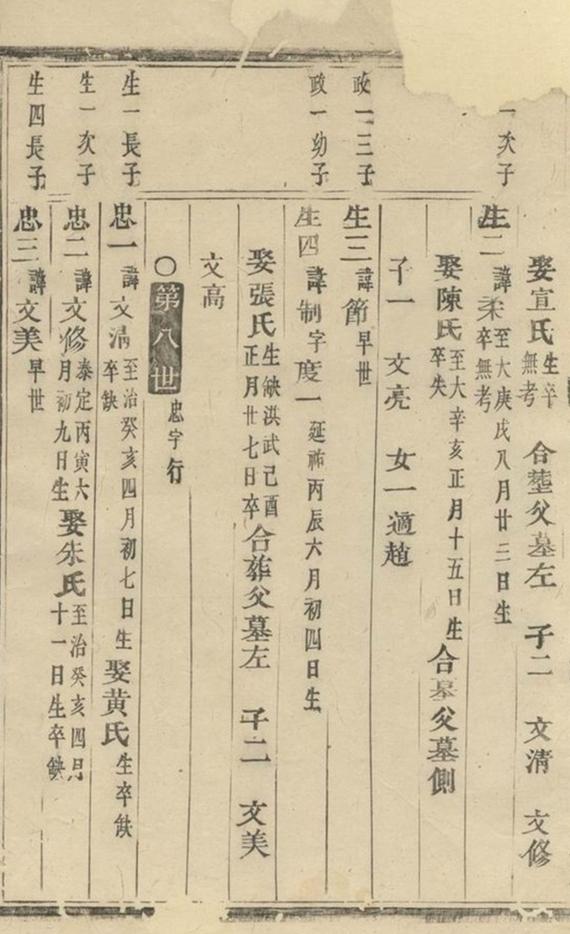 娶宣氏 生卒無考 合塟父墓左 子二 文清 文修
一次子 生二 諱柔 至大庚戌八月廿三日生卒無考
娶陳氏 至大辛亥正月十五日生卒失 合墓父墓側
子一 文亮 女一適趙
政一三子 生三 諱節 早世
政一幼子 生四 諱制字度一 延祐丙辰六月初四日生
娶張氏 生缺洪武己酉正月廿七日卒 合葬父墓左 子二 文美
文高
○第八世 忠字行
生一長子 忠一 諱文清 至治癸亥四月初七日生卒缺 娶黃氏 生卒缺
生一次子 忠二 諱文修 泰定丙寅六月初九日生 娶朱氏 至治癸亥四月十一日生卒缺
生四長子 忠三 諱文美 早世